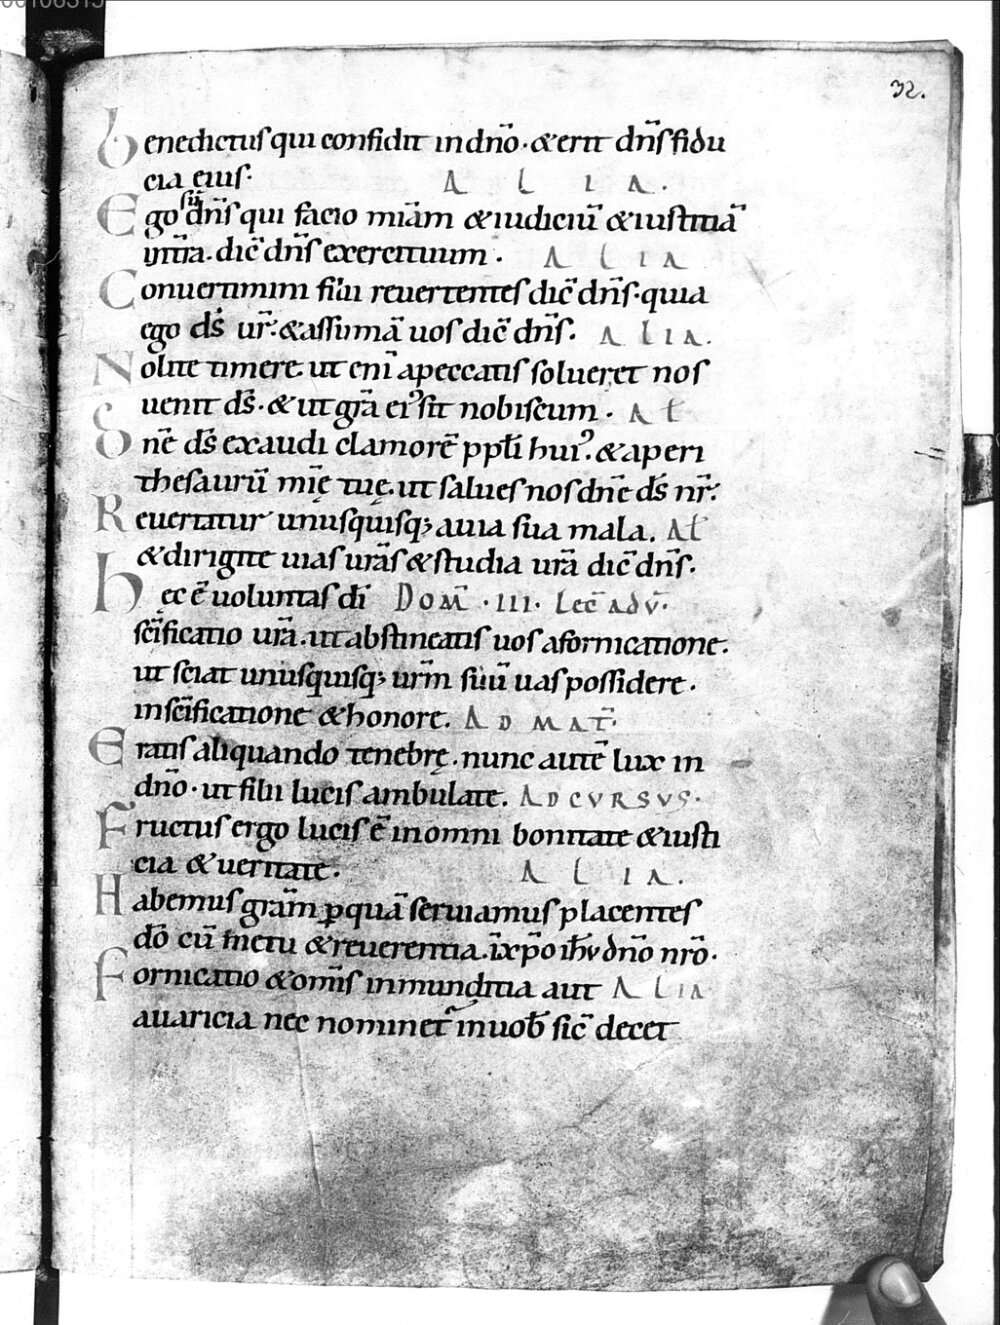 00106315
32.
Benedictus qui confidit in dn̄o · & erit dn̄s fidu
cia eius · A L I A .
Ego sū dn̄s qui facio miām & iudiciū & iustitiā
in t̄ra . dic̄ dn̄s exercituum . A L I A
Conuertimini filii reuertentes dic̄ dn̄s · quia
ego ds̄ ur̄ · & assumā uos dic̄ dn̄s . A L I A .
Nolite timere . ut eni̅ a peccatis solueret nos
uenit ds̄ . & ut gr̄a eiꝰ sit nobiscum . A ł
Dn̄e ds̄ exaudi clamorē ppl̄i huiꝰ . & aperi
thesaurū mīę tuę . ut salues nos dn̄e ds̄ nr̄ .
Reuertatur unusquisq; a uia sua mala . A ł
& dirigite uias ur̄as & studia ur̄a dic̄ dn̄s .
Hęc ē uoluntas dī DOM̄ · III · Lec̄ adv̄ .
sc̄ificatio ur̄a . ut abstineatis uos a fornicatione .
ut sciat unusquisq; ur̄m suū uas possidere .
in sc̄ificatione & honore . A D M A T̄ .
Eratis aliquando tenebrę . nunc autē lux in
dn̄o · ut filii lucis ambulate . A D C V R S V S .
Fructus ergo lucis ē in omni bonitate & iusti
cia & ueritate . A L I A .
Habemus gr̄am ꝑ quā seruiamus placentes
dō cū metu & reuerentia . ī xp̄o ih̄v dn̄o nr̄o .
Fornicatio & om̄is inmunditia aut A L I A
auaricia nec nominet̄ in uob̄ sic̄ decet